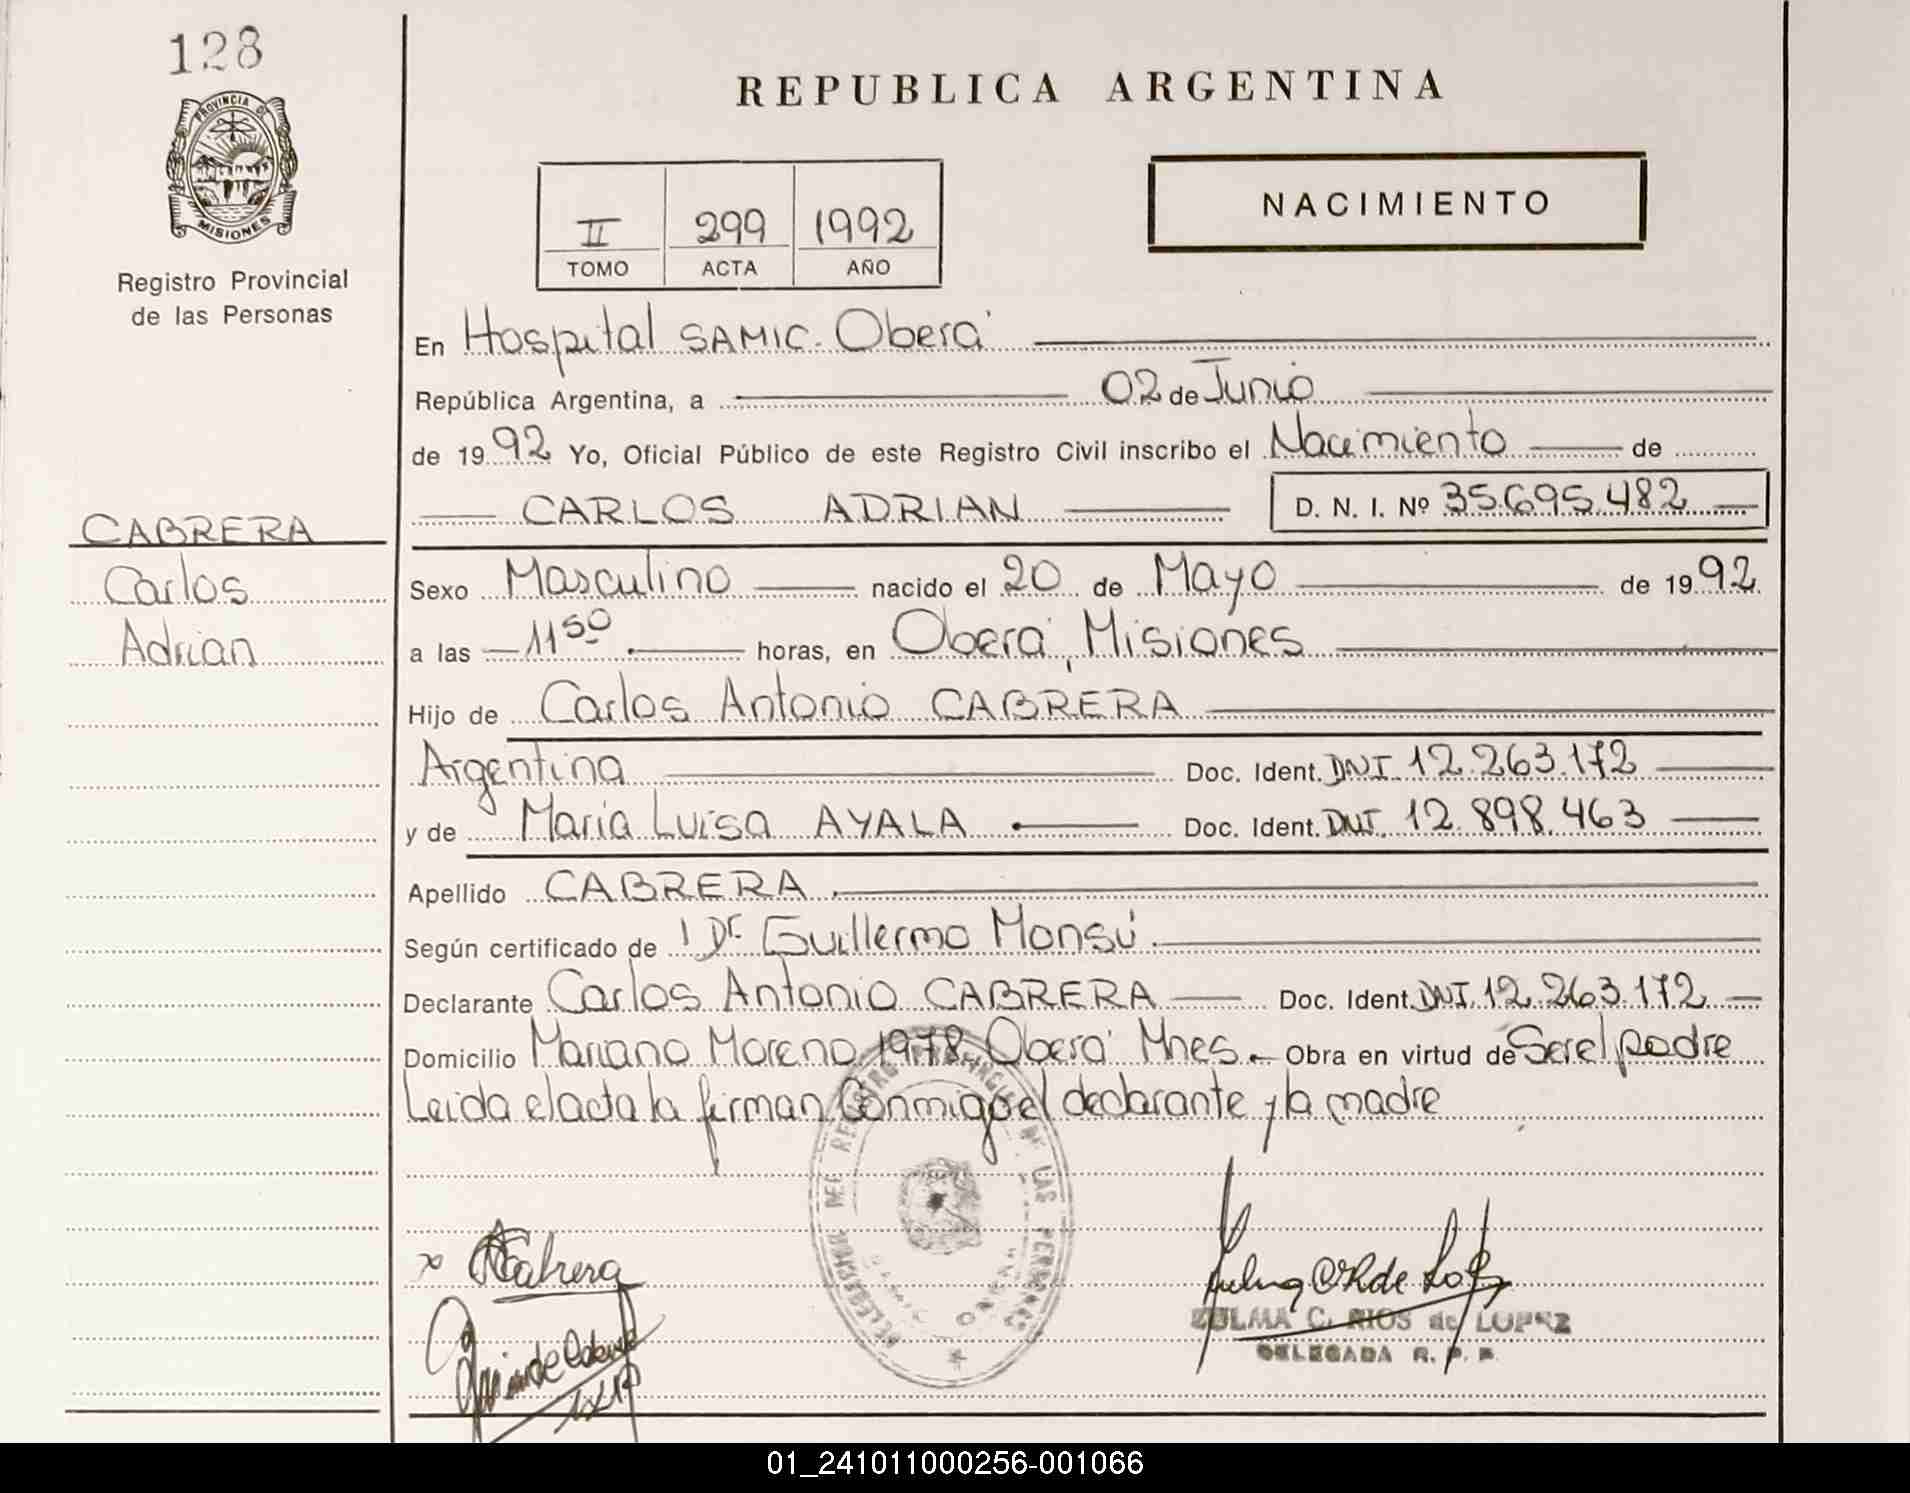 128
PROVINCIA DE
MISIONES
Registro Provincial
de las Personas
CABRERA
Carlos
Adrian
REPUBLICA ARGENTINA
II 299 1992
TOMO ACTA AÑO
NACIMIENTO
En Hospital SAMIC. Oberá
República Argentina, a 02 de Junio
de 1992 Yo, Oficial Público de este Registro Civil inscribo el Nacimiento de
CARLOS ADRIAN D. N. I. Nº 35.695.482
Sexo Masculino nacido el 20 de Mayo de 1992
a las 11 50 horas, en Oberá, Misiones
Hijo de Carlos Antonio CABRERA
Argentina Doc. Ident. DNI. 12.263.172
y de Maria Luisa AYALA Doc. Ident. DNI. 12.898.463
Apellido CABRERA
Según certificado de Dr. Guillermo Monsú
Declarante Carlos Antonio CABRERA Doc. Ident. DNI. 12.263.172
Domicilio Mariano Moreno 1978 Oberá Mnes. Obra en virtud de Ser el padre
Leida el acta la firman Conmigo el declarante y la madre
Cabrera
ZULMA C. RIOS de LOPEZ
DELEGADA R. P. P.
01_241011000256-001066